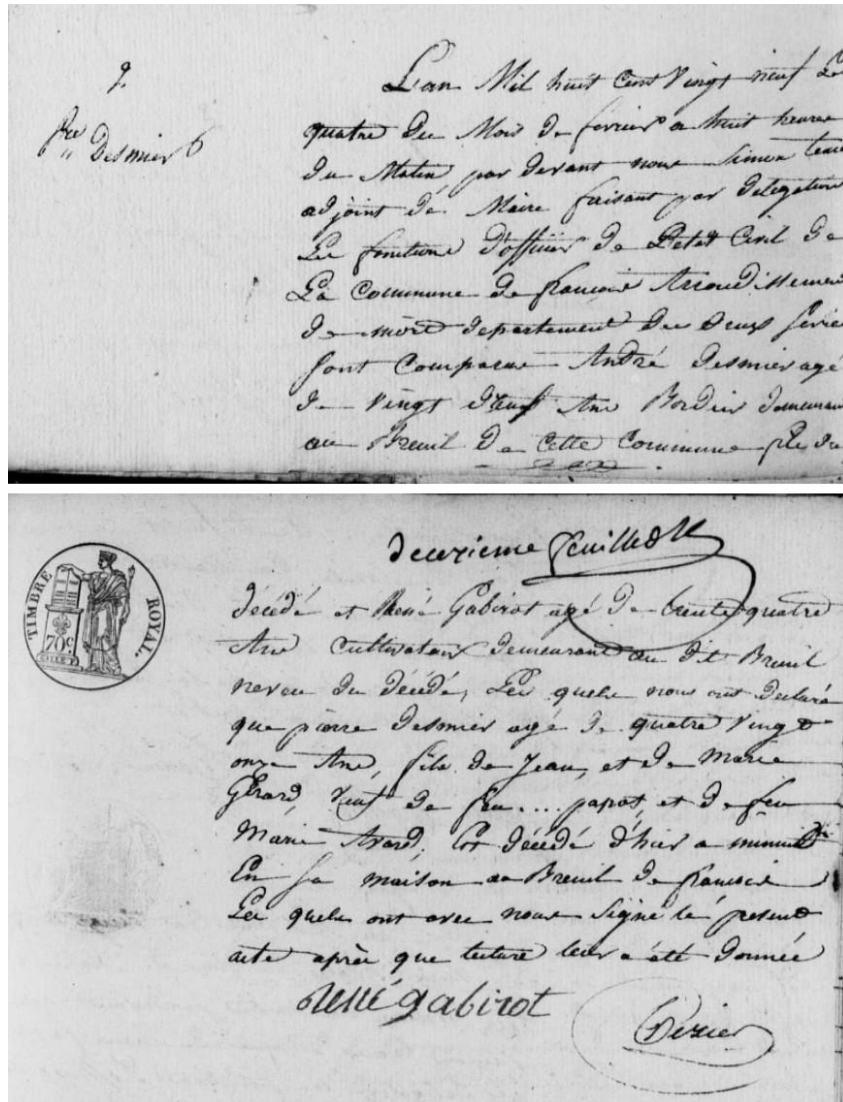 2.
pre Desmier 6
L'an Mil huit Cent Vingt neuf Le
quatre du Mois de fevrier a huit heures
du Matin par devant nous Simon
adjoint de Maire faisant par delegation
Les fonctions d'officier de L'etat Civil de
La Commune de francois Arrondissement
de niort departement des deux Sevres
Sont Comparus André desmier agé
de Vingt Ans Bordier demeurant
au Breuil de Cette Commune fils du
deuxieme feuillet
TIMBRE ROYAL.
70c.
décédé et René Gabirot agé de trente quatre
Ans Cultivateur demeurant au dit Breuil
neveu du décédé, Les quels nous ont declaré
que pierre desmier agé de quatre Vingt
onze Ans, fils de Jean, et de Marie
Gérard, Veuf de feu.... papot, et de feu
Marie Avard, Est décédé d'hier a minuit
En Sa maison au Breuil de francois
Les quels ont avec nous Signé le present
acte après que lecture leur a été donnée
René gabirot